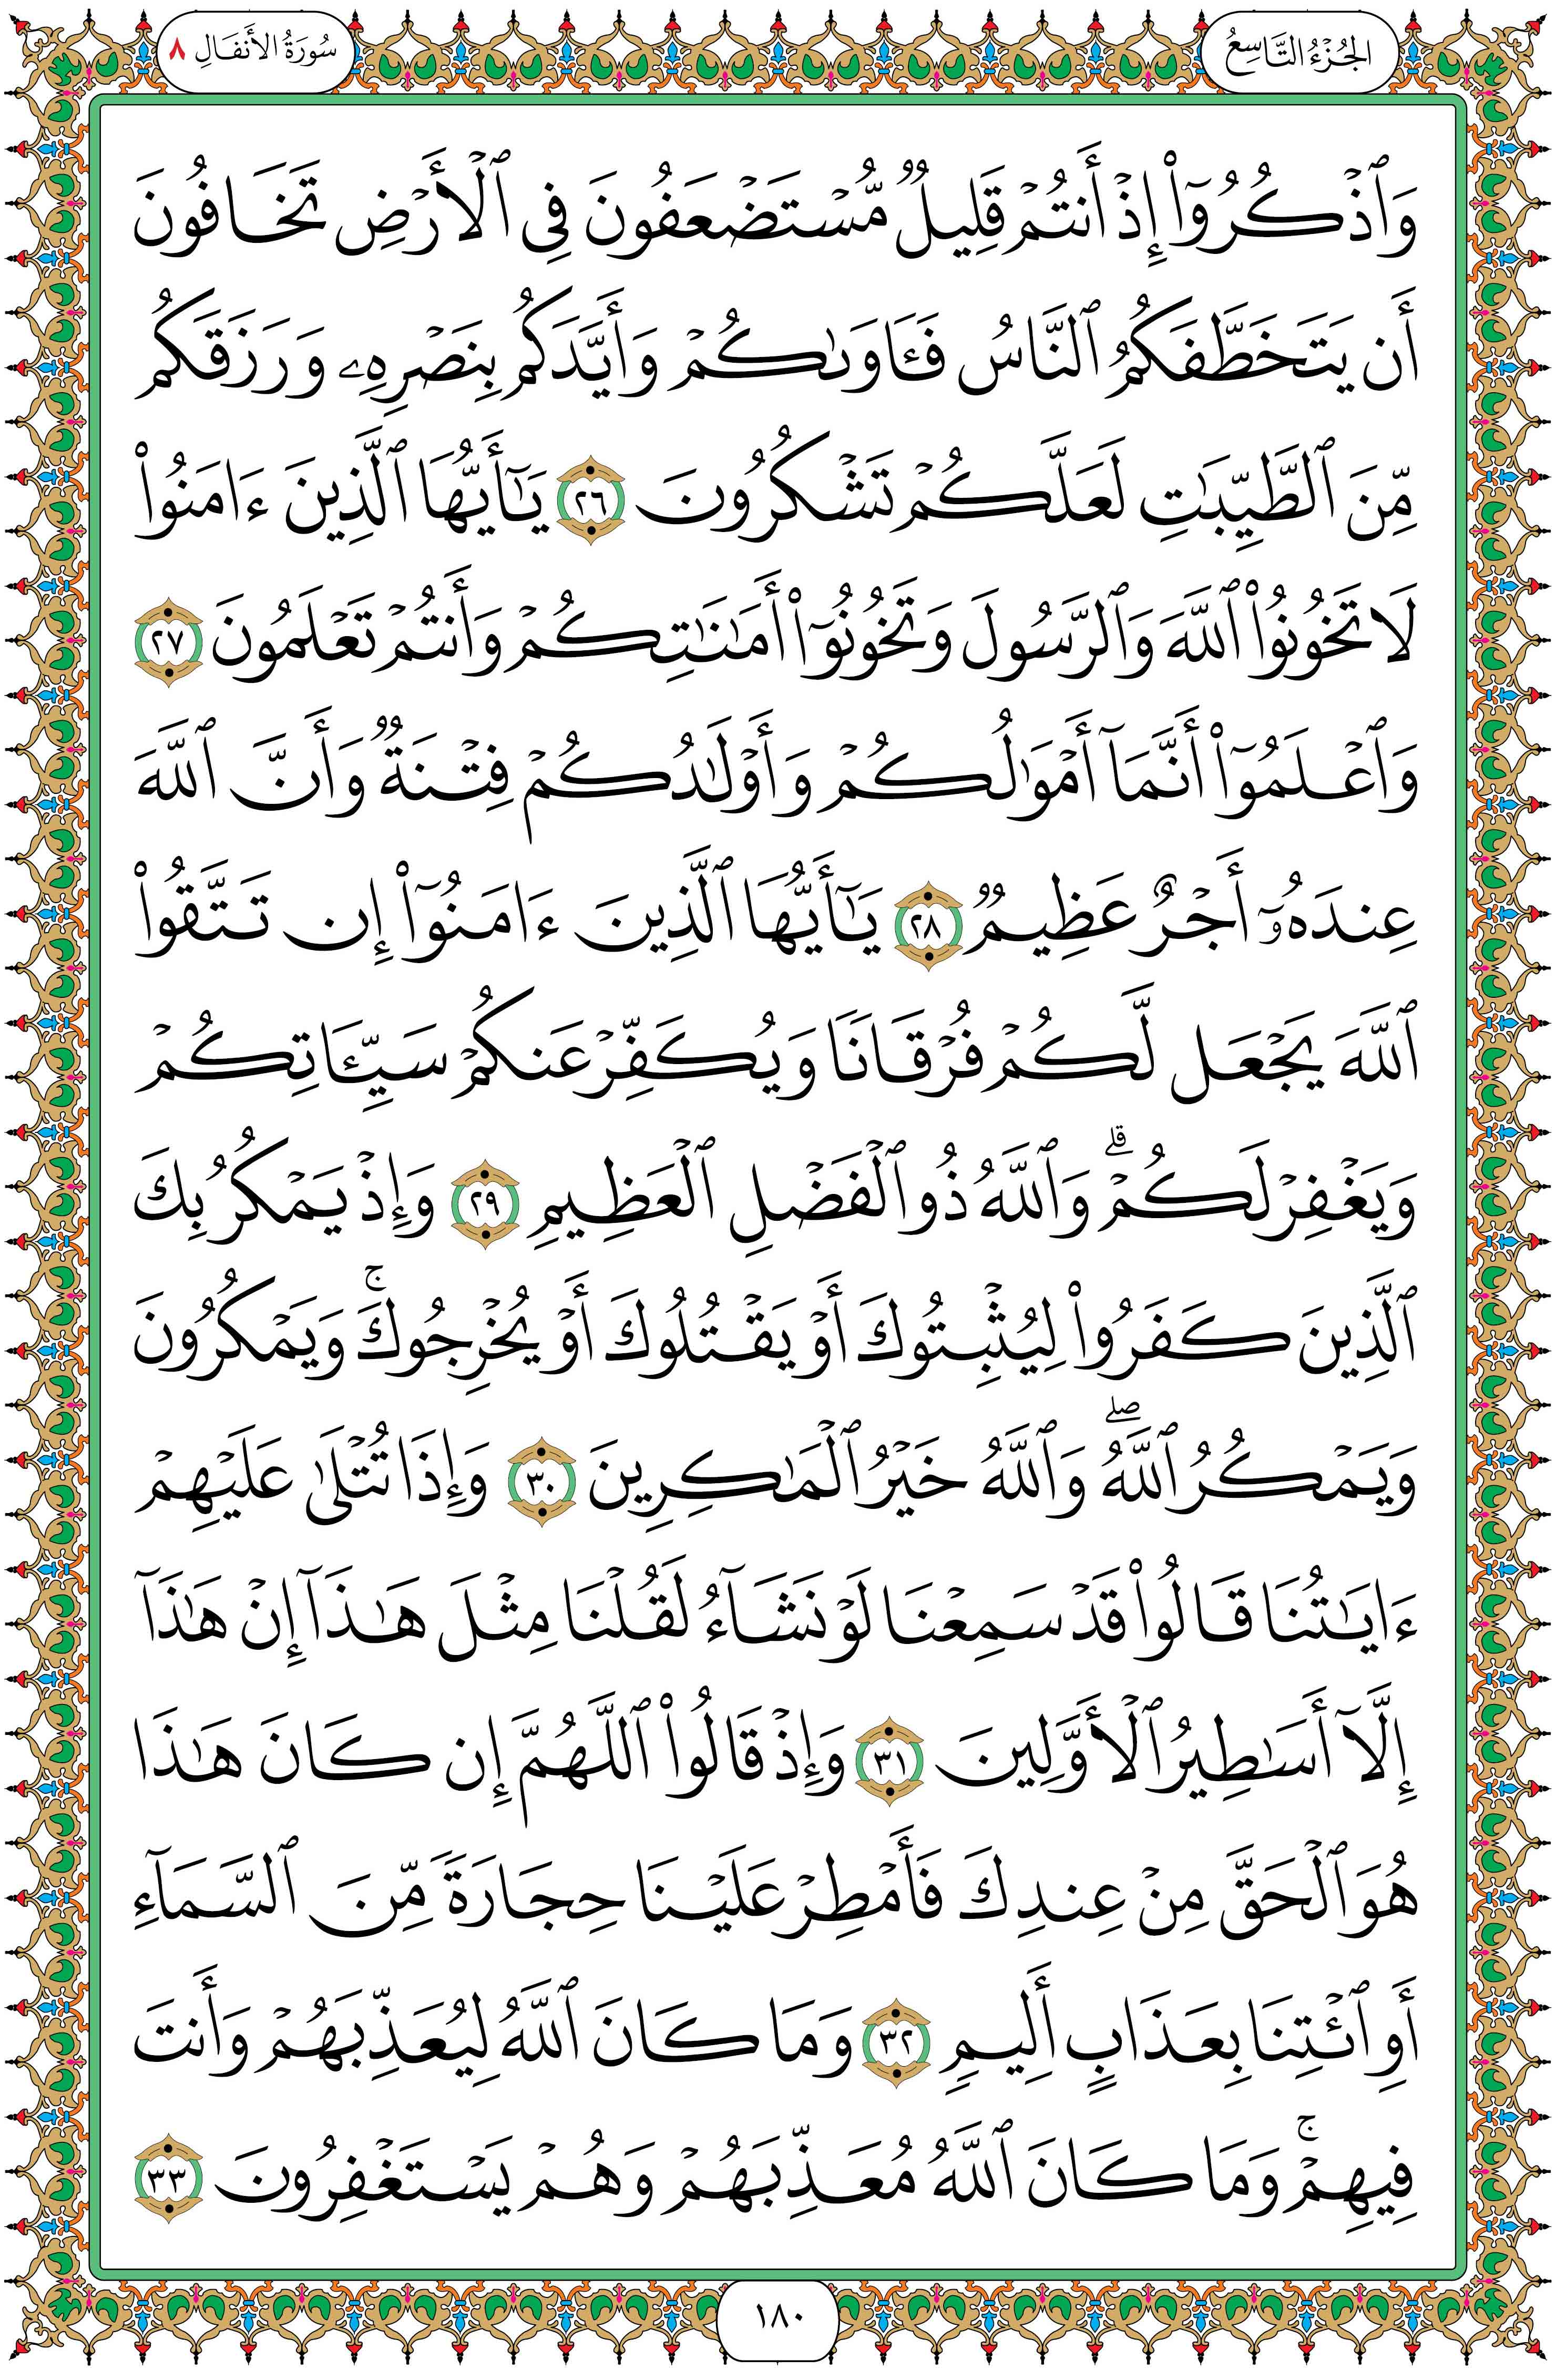 الجُزْءُ التَّاسِعُ
سُورَةُ الأَنفَالِ ٨
وَٱذْكُرُوٓا۟ إِذْ أَنتُمْ قَلِيلٌ مُّسْتَضْعَفُونَ فِى ٱلْأَرْضِ تَخَافُونَ
أَن يَتَخَطَّفَكُمُ ٱلنَّاسُ فَـَٔاوَىٰكُمْ وَأَيَّدَكُم بِنَصْرِهِۦ وَرَزَقَكُم
مِّنَ ٱلطَّيِّبَٰتِ لَعَلَّكُمْ تَشْكُرُونَ ٢٦ يَٰٓأَيُّهَا ٱلَّذِينَ ءَامَنُوا۟
لَا تَخُونُوا۟ ٱللَّهَ وَٱلرَّسُولَ وَتَخُونُوٓا۟ أَمَٰنَٰتِكُمْ وَأَنتُمْ تَعْلَمُونَ ٢٧
وَٱعْلَمُوٓا۟ أَنَّمَآ أَمْوَٰلُكُمْ وَأَوْلَٰدُكُمْ فِتْنَةٌ وَأَنَّ ٱللَّهَ
عِندَهُۥٓ أَجْرٌ عَظِيمٌ ٢٨ يَٰٓأَيُّهَا ٱلَّذِينَ ءَامَنُوٓا۟ إِن تَتَّقُوا۟
ٱللَّهَ يَجْعَل لَّكُمْ فُرْقَانًا وَيُكَفِّرْ عَنكُمْ سَيِّـَٔاتِكُمْ
وَيَغْفِرْ لَكُمْ ۗ وَٱللَّهُ ذُو ٱلْفَضْلِ ٱلْعَظِيمِ ٢٩ وَإِذْ يَمْكُرُ بِكَ
ٱلَّذِينَ كَفَرُوا۟ لِيُثْبِتُوكَ أَوْ يَقْتُلُوكَ أَوْ يُخْرِجُوكَ ۚ وَيَمْكُرُونَ
وَيَمْكُرُ ٱللَّهُ ۖ وَٱللَّهُ خَيْرُ ٱلْمَٰكِرِينَ ٣٠ وَإِذَا تُتْلَىٰ عَلَيْهِمْ
ءَايَٰتُنَا قَالُوا۟ قَدْ سَمِعْنَا لَوْ نَشَآءُ لَقُلْنَا مِثْلَ هَٰذَآ إِنْ هَٰذَآ
إِلَّآ أَسَٰطِيرُ ٱلْأَوَّلِينَ ٣١ وَإِذْ قَالُوا۟ ٱللَّهُمَّ إِن كَانَ هَٰذَا
هُوَ ٱلْحَقَّ مِنْ عِندِكَ فَأَمْطِرْ عَلَيْنَا حِجَارَةً مِّنَ ٱلسَّمَآءِ
أَوِ ٱئْتِنَا بِعَذَابٍ أَلِيمٍ ٣٢ وَمَا كَانَ ٱللَّهُ لِيُعَذِّبَهُمْ وَأَنتَ
فِيهِمْ ۚ وَمَا كَانَ ٱللَّهُ مُعَذِّبَهُمْ وَهُمْ يَسْتَغْفِرُونَ ٣٣
١٨٠